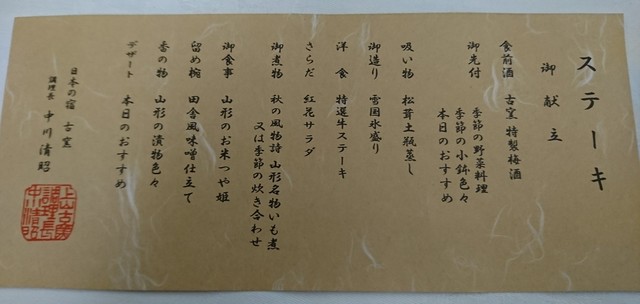 ステーキ
御献立
食前酒 古窯 特製梅酒
御先付 季節の野菜料理
季節の小鉢色々
本日のおすすめ
吸い物 松茸土瓶蒸し
御造り 雪国氷盛り
洋食 特選牛ステーキ
さらだ 紅花サラダ
御煮物 秋の風物詩 山形名物いも煮
又は季節の炊き合わせ
御食事 山形のお米つや姫
留め椀 田舎風味噌仕立て
香の物 山形の漬物色々
デザート 本日のおすすめ
日本の宿 古窯
調理長 中川清昭
上山古窯
調理長
中川清昭